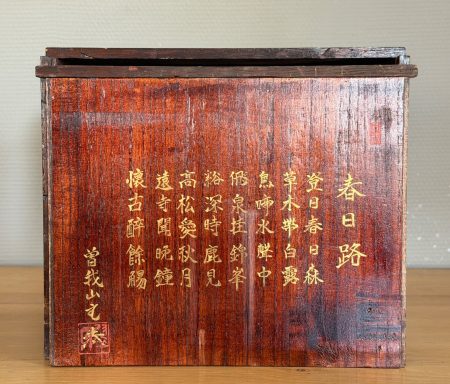 春日路
登日春日森
草木帶白露
鳥啼水聲中
飛泉挂錦峯
谿深時鹿見
高松愛秋月
遠寺聞晩鐘
懷古醉餘觴
曽我山